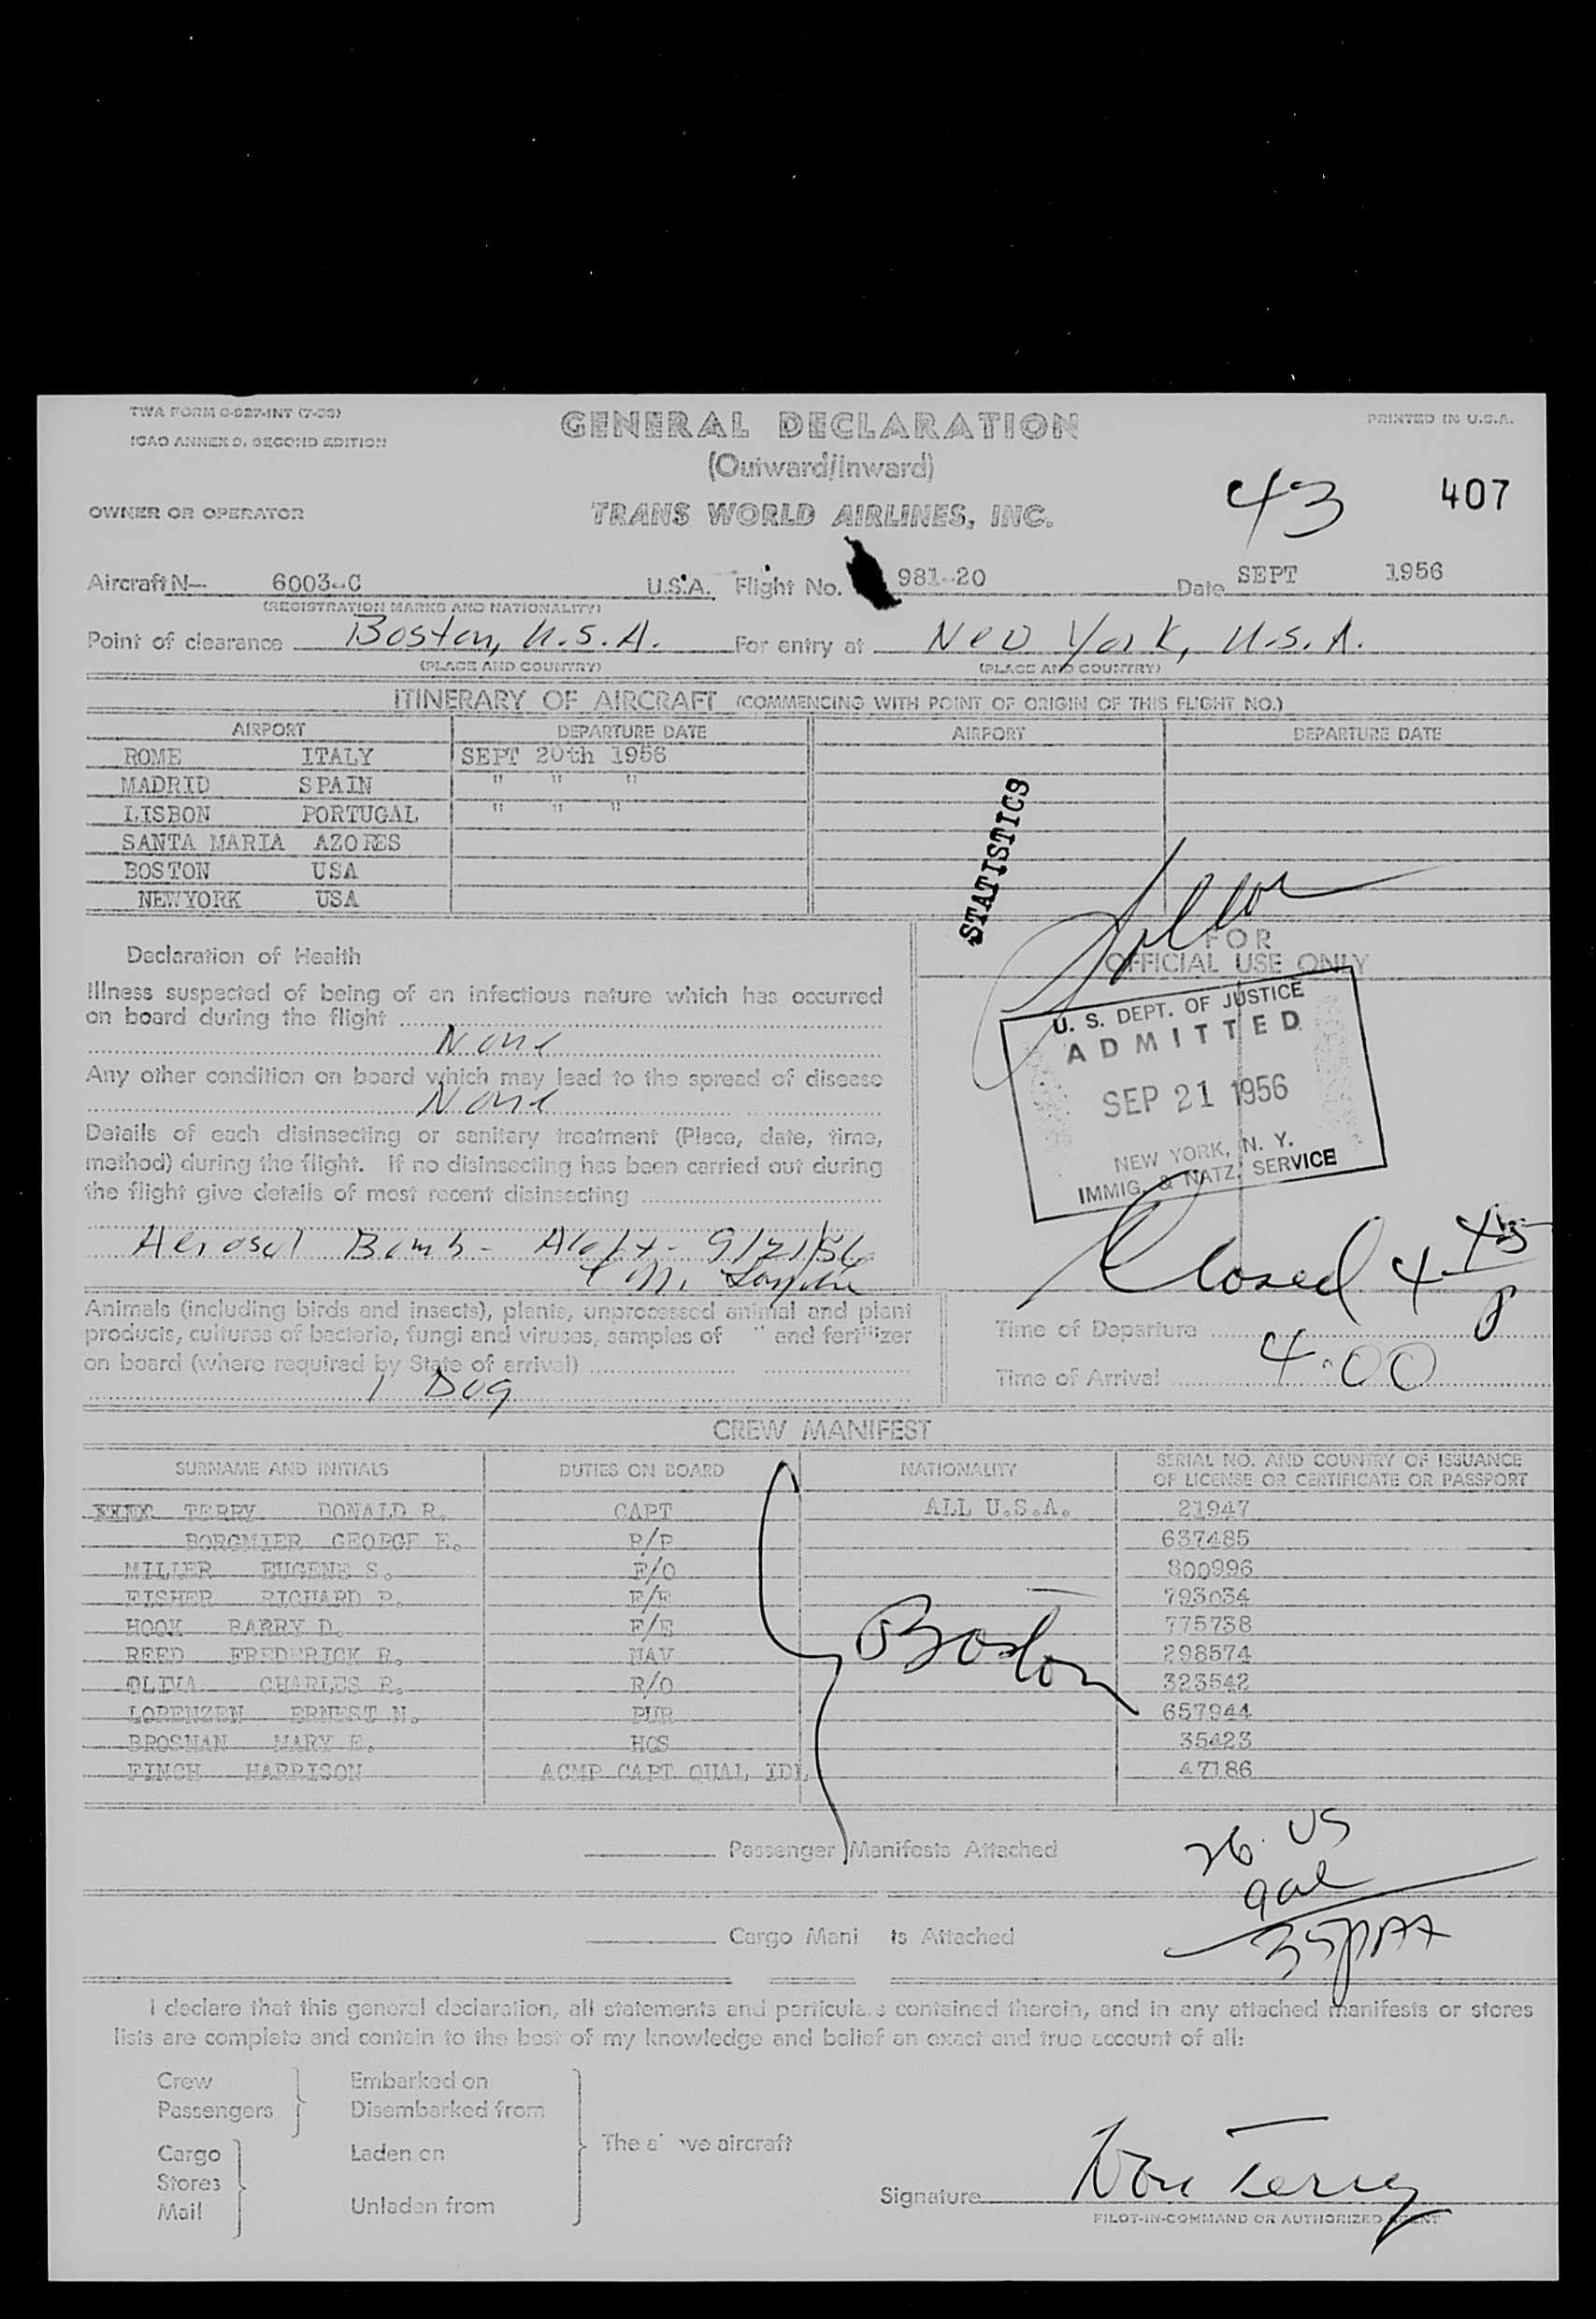 TWA FORM O-927-INT (7-53)
ICAO ANNEX 9, SECOND EDITION
GENERAL DECLARATION
PRINTED IN U.S.A.
(Outward/Inward)
43 407
OWNER OR OPERATOR TRANS WORLD AIRLINES, INC.
Aircraft N— 6003-C U.S.A. Flight No. 981-20 Date SEPT 1956
(REGISTRATION MARKS AND NATIONALITY)
Point of clearance Boston, U.S.A. For entry at New York, U.S.A.
(PLACE AND COUNTRY) (PLACE AND COUNTRY)
ITINERARY OF AIRCRAFT (COMMENCING WITH POINT OF ORIGIN OF THIS FLIGHT NO.)
AIRPORT DEPARTURE DATE AIRPORT DEPARTURE DATE
ROME ITALY SEPT 20th 1956
MADRID SPAIN " " "
LISBON PORTUGAL " " "
SANTA MARIA AZORES
BOSTON USA
NEWYORK USA
STATISTICS
Declaration of Health
Illness suspected of being of an infectious nature which has occurred
on board during the flight
None
Any other condition on board which may lead to the spread of disease
None
Details of each disinsecting or sanitary treatment (Place, date, time,
method) during the flight. If no disinsecting has been carried out during
the flight give details of most recent disinsecting
Aerosol Bomb - Aloft - 9/21/56
FOR
OFFICIAL USE ONLY
U. S. DEPT. OF JUSTICE
ADMITTED
SEP 21 1956
NEW YORK, N. Y.
IMMIG. & NATZ. SERVICE
Closed 4 45 p
Animals (including birds and insects), plants, unprocessed animal and plant
products, cultures of bacteria, fungi and viruses, samples of and fertilizer
on board (where required by State of arrival)
1 Dog
Time of Departure
Time of Arrival 4:00
CREW MANIFEST
SURNAME AND INITIALS DUTIES ON BOARD NATIONALITY SERIAL NO. AND COUNTRY OF ISSUANCE
OF LICENSE OR CERTIFICATE OR PASSPORT
TERRY DONALD R. CAPT ALL U.S.A. 21947
BORGMIER GEORGE E. R/P 637485
MILLER EUGENE S. F/O 800996
FISHER RICHARD P. F/E 793034
HOOK BARRY D. F/E 775738
REED FREDERICK R. NAV 298574
OLIVA CHARLES R. R/O 323542
LORENZEN ERNEST N. PUR 657944
BROSNAN MARY E. HOS 35423
FINCH HARRISON ACMP CAPT QUAL IDL 47186
Boston
Passenger Manifests Attached
26 US
9 al
35 pax
Cargo Mani ts Attached
I declare that this general declaration, all statements and particulars contained therein, and in any attached manifests or stores
lists are complete and contain to the best of my knowledge and belief an exact and true account of all:
Crew Embarked on
Passengers Disembarked from
Cargo Laden on The a ve aircraft
Stores
Mail Unladen from
Signature Don Terry
PILOT-IN-COMMAND OR AUTHORIZED AGENT